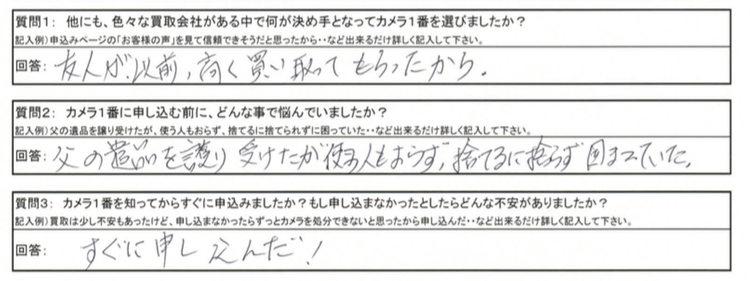 質問1： 他にも、色々な買取会社がある中で何が決め手となってカメラ1番を選びましたか？
記入例）申込みページの「お客様の声」を見て信頼できそうだと思ったから‥など出来るだけ詳しく記入して下さい。
回答： 友人が以前、高く買い取ってもらったから。
質問2： カメラ1番に申し込む前に、どんな事で悩んでいましたか？
記入例）父の遺品を譲り受けたが、使う人もおらず、捨てるに捨てられずに困っていた‥など出来るだけ詳しく記入して下さい。
回答： 父の遺品を譲り受けたが使う人もおらず、捨てるに捨らず困まっていた。
質問3： カメラ1番を知ってからすぐに申込みましたか？もし申し込まなかったとしたらどんな不安がありましたか？
記入例）買取は少し不安もあったけど、申し込まなかったらずっとカメラを処分できないと思ったから申し込んだ‥など出来るだけ詳しく記入して下さい。
回答： すぐに申し込んだ！